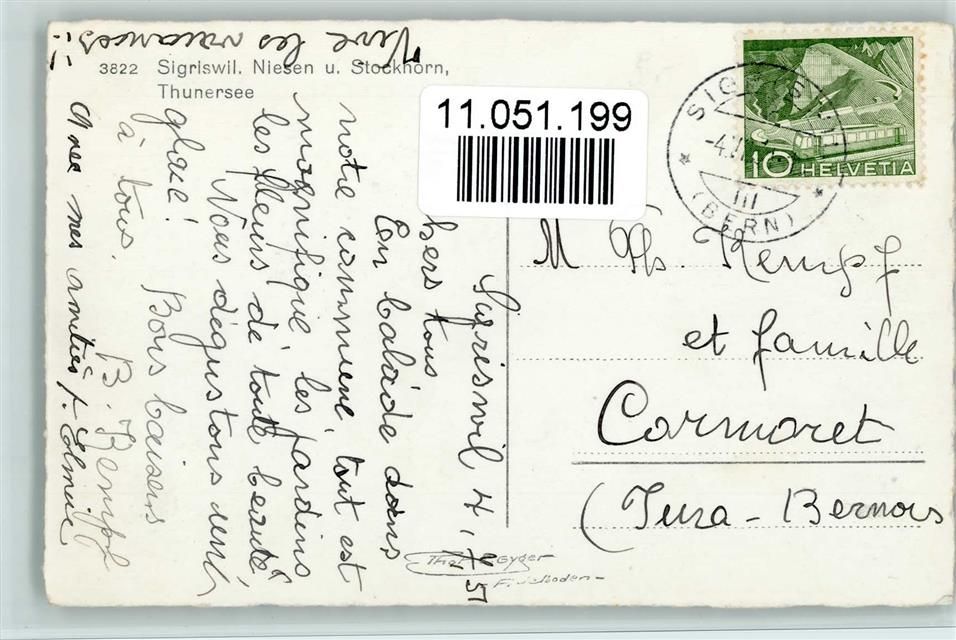 Vive les vacances!!
3822 Sigriswil. Niesen u. Stockhorn,
Thunersee
11.051.199
10 HELVETIA
III
(BERN)
Sigriswil 4.
51
hers tous
En balade dans
notre commune, tout est
magnifique les jardins
les fleurs de toute beauté
Nous dégustons une
glace! Bons baisers
à tous.
B. Kempf
avec mes amitiés
M Kempf
et famille
Cormoret
(Jura - Bernois
Gyger